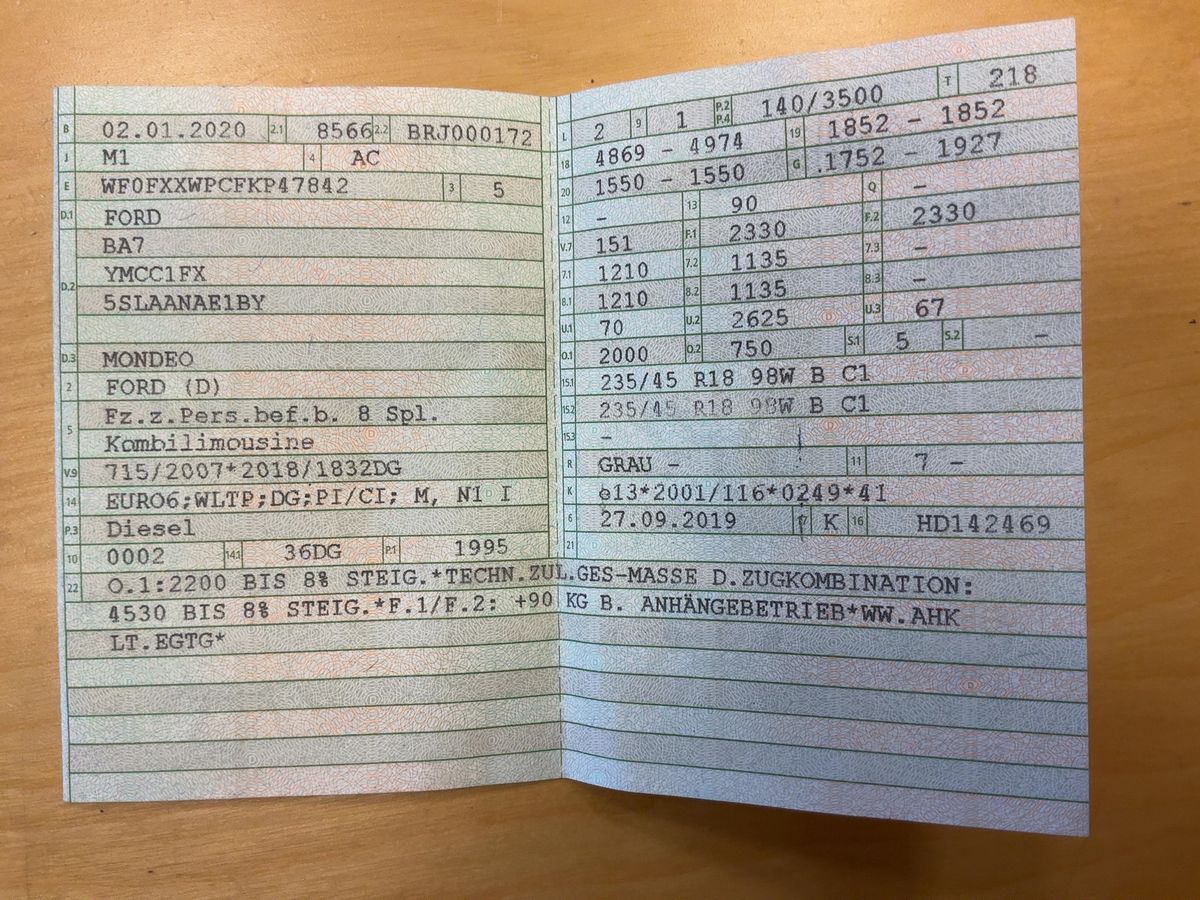 B 02.01.2020 2.1 8566 2.2 BRJ000172
J M1 4 AC
E WF0FXXWPCFKP47842 3 5
D.1 FORD
BA7
D.2 YMCC1FX
5SLAANAE1BY
D.3 MONDEO
2 FORD (D)
5 Fz.z.Pers.bef.b. 8 Spl.
Kombilimousine
V.9 715/2007*2018/1832DG
14 EURO6;WLTP;DG;PI/CI; M, N1 I
P.3 Diesel
10 0002 14.1 36DG P.1 1995
L 2 9 1 P.2 P.4 140/3500 T 218
18 4869 - 4974 19 1852 - 1852
20 1550 - 1550 G .1752 - 1927
12 - 13 90 Q -
V.7 151 F.1 2330 F.2 2330
7.1 1210 7.2 1135 7.3 -
8.1 1210 8.2 1135 8.3 -
U.1 70 U.2 2625 U.3 67
O.1 2000 O.2 750 S.1 5 S.2 -
15.1 235/45 R18 98W B C1
15.2 235/45 R18 98W B C1
15.3 -
R GRAU - 11 7 -
K e13*2001/116*0249*41
6 27.09.2019 17 K 16 HD142469
21
22 O.1:2200 BIS 8% STEIG.*TECHN.ZUL.GES-MASSE D.ZUGKOMBINATION:
4530 BIS 8% STEIG.*F.1/F.2: +90 KG B. ANHÄNGEBETRIEB*WW.AHK
LT.EGTG*